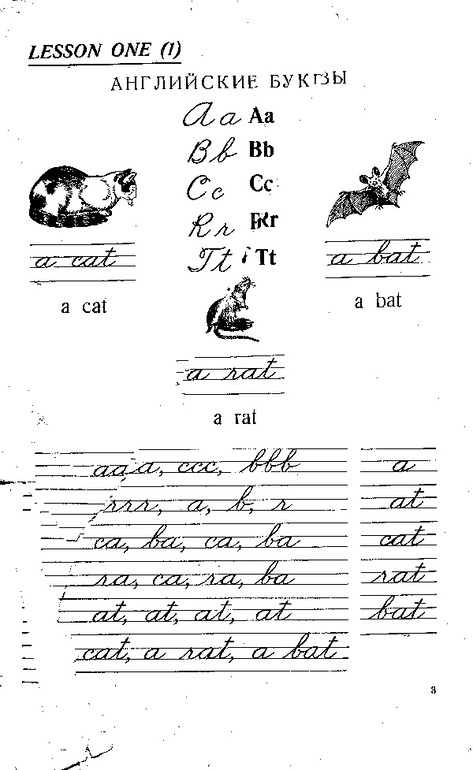 LESSON ONE (1)
АНГЛИЙСКИЕ БУКВЫ
Aa Aa
Bb Bb
Cc Cc
Rr Rr
Tt Tt
a cat
a cat
a bat
a bat
a rat
a rat
aaa, ccc, bbb
rrr, a, b, r
ca, ba, ca, ba
ra, ca, ra, ba
at, at, at, at
cat, a rat, a bat
a
at
cat
rat
bat
3